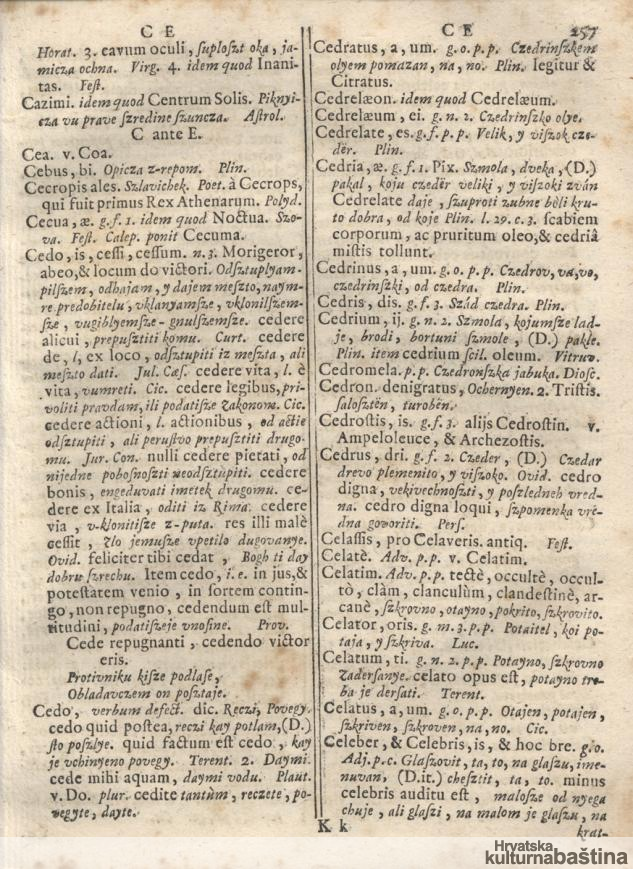 C E
Horat. 3. cavum oculi, ſuploszt oka, ja-
micza ochna. Virg. 4. idem quod Inani-
tas. Feſt.
Cazimi. idem quod Centrum Solis. Piknyi-
cza vu prave ſzredine ſzuncza. Aſtrol.
C ante E.
Cea. v. Coa.
Cebus, bi. Opicza z-repom. Plin.
Cecropis ales. Szlavichek. Poet. à Cecrops,
qui fuit primus Rex Athenarum. Polyd.
Cecua, æ. g. f. 1. idem quod Noctua. Szo-
va. Feſt. Calep. ponit Cecuma.
Cedo, is, ceſſi, ceſſum. n. 3. Morigeror,
abeo, & locum do victori. Odſztuplyam-
pilſzem, odhajam, y dajem meſzto, naym-
re predobitelu, vklanyamſze, vklonilſzem-
ſze, vugiblyemſze-gnulſzemſze. cedere
alicui, prepuſztiti komu. Curt. cedere
de, l, ex loco, odſztupiti iz meſzta, ali
meſzto dati. Jul. Cæſ. cedere vita, l. è
vita, vumreti. Cic. cedere legibus, pri-
voliti pravdam, ili podatiſze zakonom. Cic.
cedere actioni, l. actionibus, od actie
odſztupiti, ali peruſtvo prepuſztiti drugo-
mu. Jur. Con. nulli cedere pietati, od
nijedne pobosnoſzti neodſztupiti. cedere
bonis, engeduvati imetek drugomu. ce-
dere ex Italia, oditi iz Rima. cedere
via, v-klonitiſze z-puta. res illi malè
ceſſit, zlo jemuſze vpetilo dugovanye.
Ovid. feliciter tibi cedat, Bogh ti day
dobru ſzrechu. Item cedo, i.e. in jus, &
poteſtatem venio, in ſortem contin-
go, non repugno, cedendum eſt mul-
titudini, podatiſzeje vnoſine. Prov.
Cede repugnanti, cedendo victor
eris.
Protivniku kiſze podlaſe,
Obladavczem on poſztaje.
Cedo, verbum defect. dic. Reczi, Povegy.
cedo quid poſtea, reczi kay potlam, (D.)
ſto poſzlye. quid factum eſt cedo, kay
je vchinyeno povegy. Terent. 2. Daymi.
cede mihi aquam, daymi vodu. Plaut.
v. Do. plur. cedite tantùm, reczete, po-
vegyte, dayte.
C E 257
Cedratus, a, um. g. o. p. p. Czedrinſzkem
olyem pomazan, na, no. Plin. legitur &
Citratus.
Cedrelæon. idem quod Cedrelæum.
Cedrelæum, ei. g. n. 2. Czedrinſzko olye.
Cedrelate, es. g. f. p. p. Velik, y viſzok cze-
dër. Plin.
Cedria, æ. g. f. 1. Pix. Szmola, dveka, (D.)
pakal, koju czedër veliki, y viſzoki zván
Cedrelate daje, ſzuproti zubne bèli kru-
to dobra, od koje Plin. l. 29. c. 3. ſcabiem
corporum, ac pruritum oleo, & cedriâ
miſtis tollunt.
Cedrinus, a, um. g. o. p. p. Czedrov, va, vo,
czedrinſzki, od czedra. Plin.
Cedris, dis. g. f. 3. Szád czedra. Plin.
Cedrium, ij. g. n. 2. Szmola, kojumſze lad-
je, brodi, bortuni ſzmole, (D.) pakle.
Plin. item cedrium ſcil. oleum. Vitruv.
Cedromela. p. p. Czedronſzka jabuka. Dioſc.
Cedron. denigratus, Ochernyen. 2. Triſtis.
ſaloſztën, turobën.
Cedroſtis, is. g. f. 3. alijs Cedroſtin. v.
Ampeloleuce, & Archezoſtis.
Cedrus, dri. g. f. 2. Czeder, (D.) Czedar
drevo plemenito, y viſzoko. Ovid. cedro
digna, vekivechnoſzti, y poſzledneh vred-
na. cedro digna loqui, ſzpomenka vrè-
dna govoriti. Perſ.
Celaſſis, pro Celaveris. antiq. Feſt.
Celatè. Adv. p. p. v. Celatim.
Celatim. Adv. p. p. tectè, occultè, occul-
tò, clàm, clanculùm, clandeſtinè, ar-
canè, ſzkrovno, otayno, pokrito, ſzkrovito.
Celator, oris. g. m. 3. p. p. Potaitel, koi po-
taja, y ſzkriva. Luc.
Celatum, ti. g. n. 2. p. p. Potayno, ſzkrovno
zaderſanye. celato opus eſt, potayno tre-
ba je derſati. Terent.
Celatus, a, um. g. o. p. p. Otajen, potajen,
ſzkriven, ſzkroven, na, no. Cic.
Celeber, & Celebris, is, & hoc bre. g. o.
Adj. p. c. Glaſzovit, ta, to, na glaſzu, ime-
nuvan, (D. it.) cheſztit, ta, to. minus
celebris auditu eſt, maloſze od nyega
chuje, ali glaſzi, na malom je glaſzu, na
K k
krat-
Hrvatska
kulturnabaština